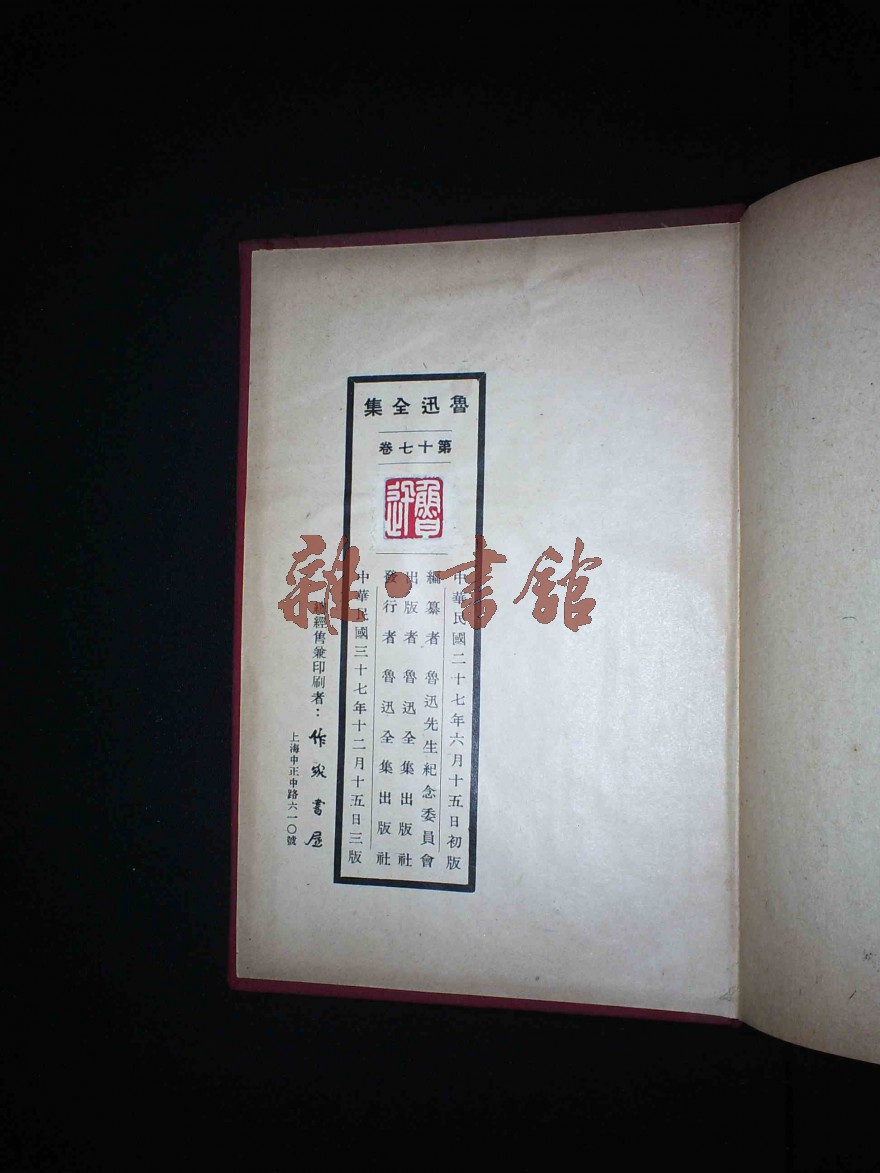 魯迅全集
第十七卷
魯迅
中華民國二十七年六月十五日初版
編纂者 魯迅先生紀念委員會
出版者 魯迅全集出版社
發行者 魯迅全集出版社
中華民國三十七年十二月十五日三版
經售兼印刷者：作家書屋
上海中正中路六一〇號
雜·書館